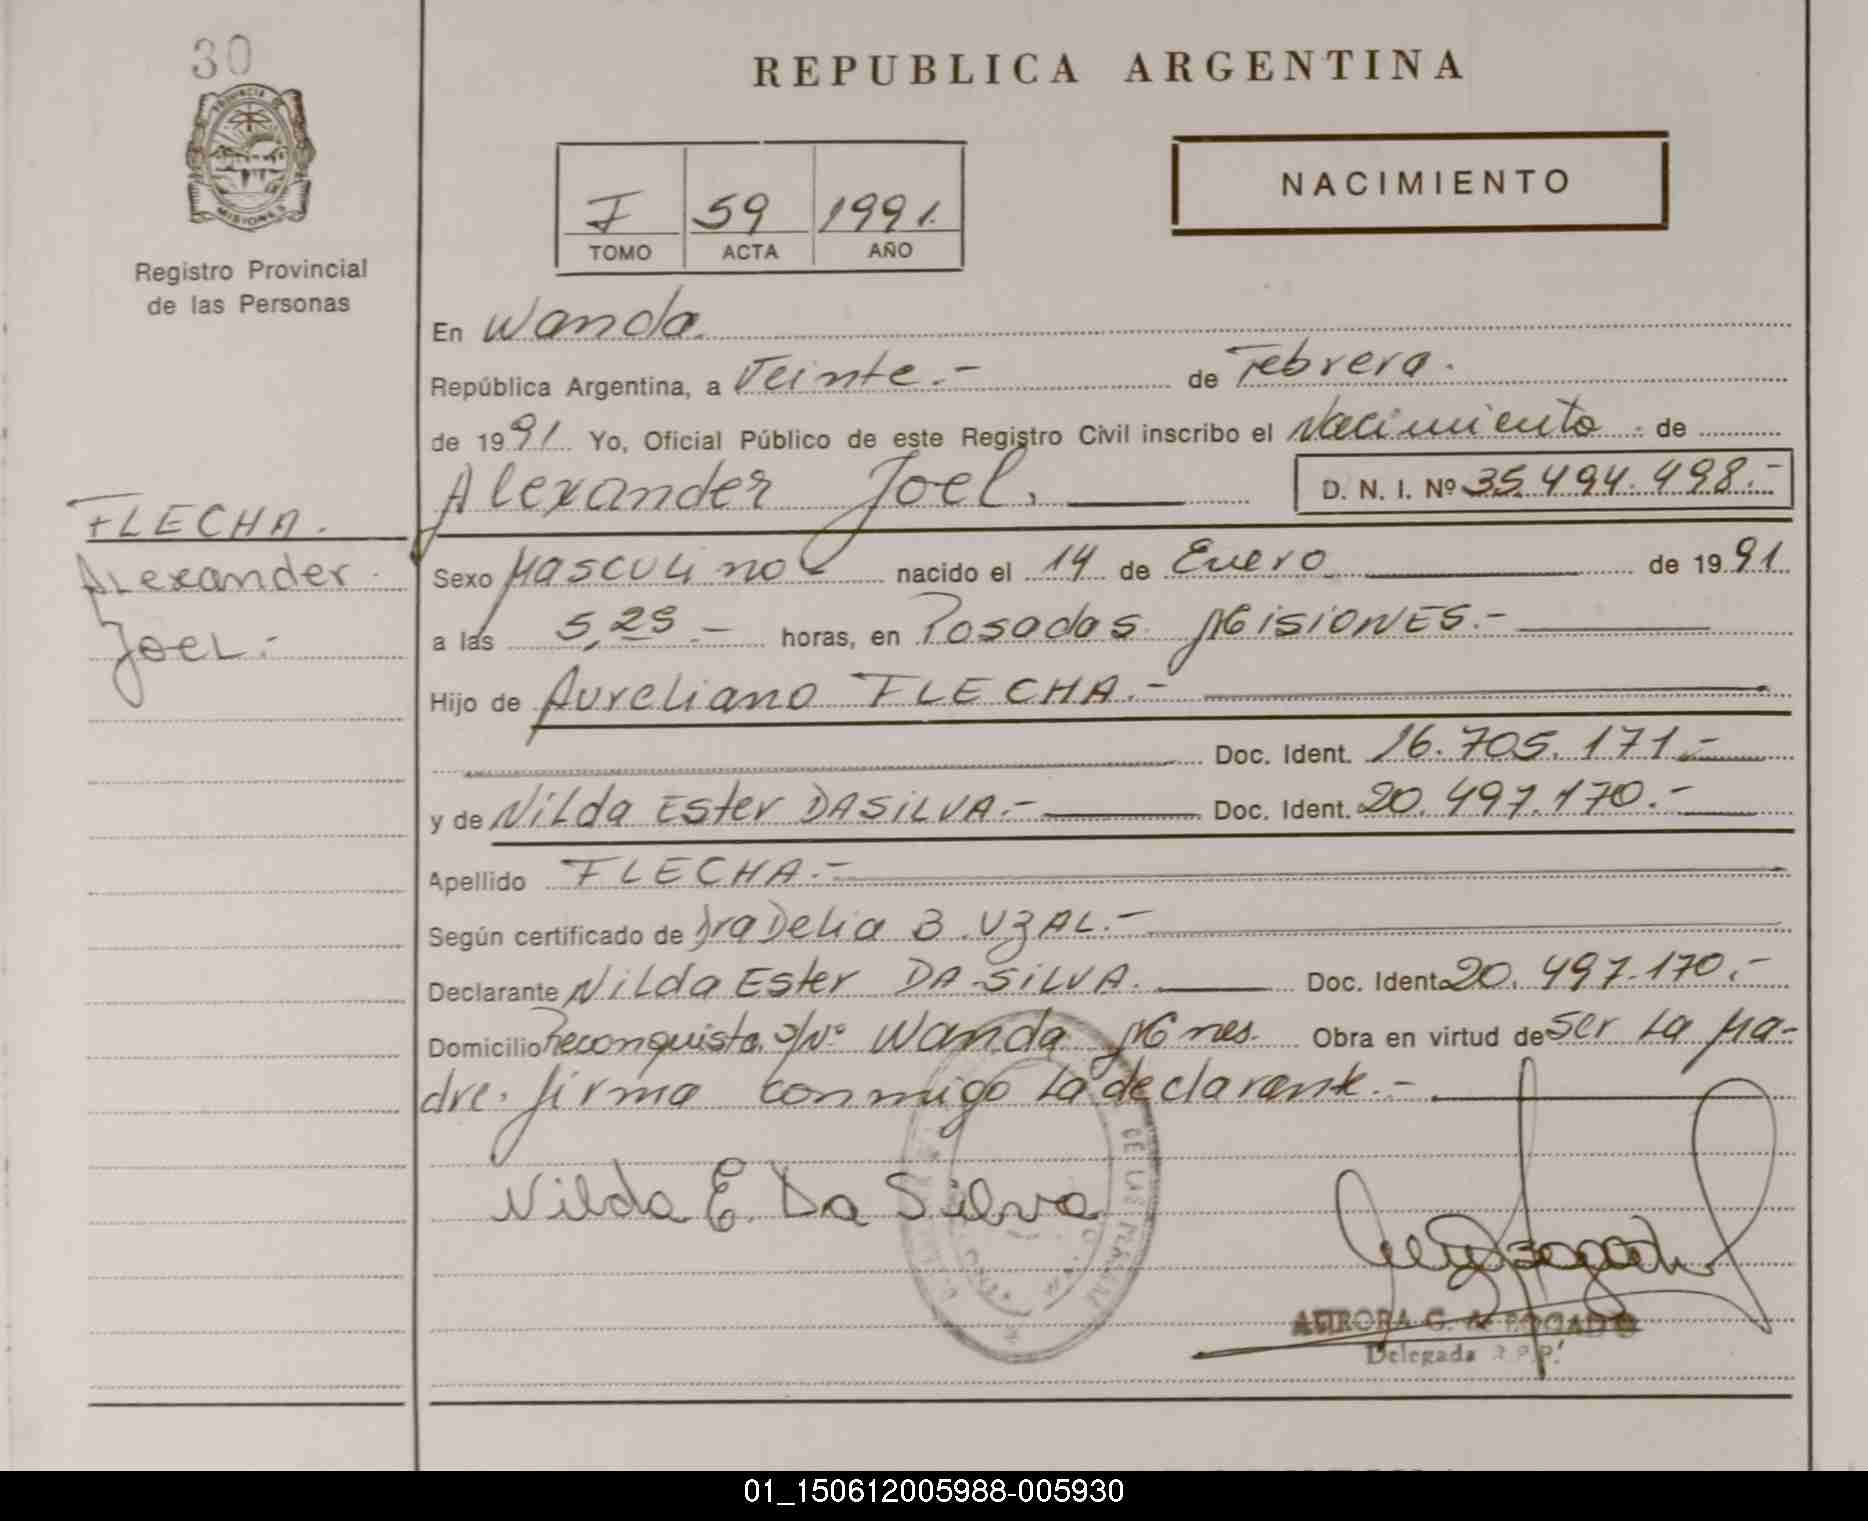 30
REPUBLICA ARGENTINA
PROVINCIA DE
MISIONES
Registro Provincial
de las Personas
I 59 1991.
TOMO ACTA AÑO
NACIMIENTO
En Wanda.
República Argentina, a Veinte.- de Febrero.
de 1991. Yo, Oficial Público de este Registro Civil inscribo el Nacimiento de
Alexander Joel. D. N. I. Nº 35.494.498.-
FLECHA.
Alexander
Joel.-
Sexo Masculino nacido el 14 de Enero de 1991
a las 5,25.- horas, en Posadas Misiones.-
Hijo de Aureliano FLECHA.-
Doc. Ident. 16.705.171.-
y de Nilda Ester DASILVA.- Doc. Ident. 20.497.170.-
Apellido FLECHA.-
Según certificado de Dra Delia B. UZAL.-
Declarante Nilda Ester DA SILVA. Doc. Ident. 20.497.170.-
Domicilio Reconquista s/Nº Wanda Mnes. Obra en virtud de ser la ma-
dre. firma conmigo la declarante.-
Nilda E. Da Silva
DE LAS
AURORA G. A. BOGADO
Delegada R.P.P.
01_150612005988-005930